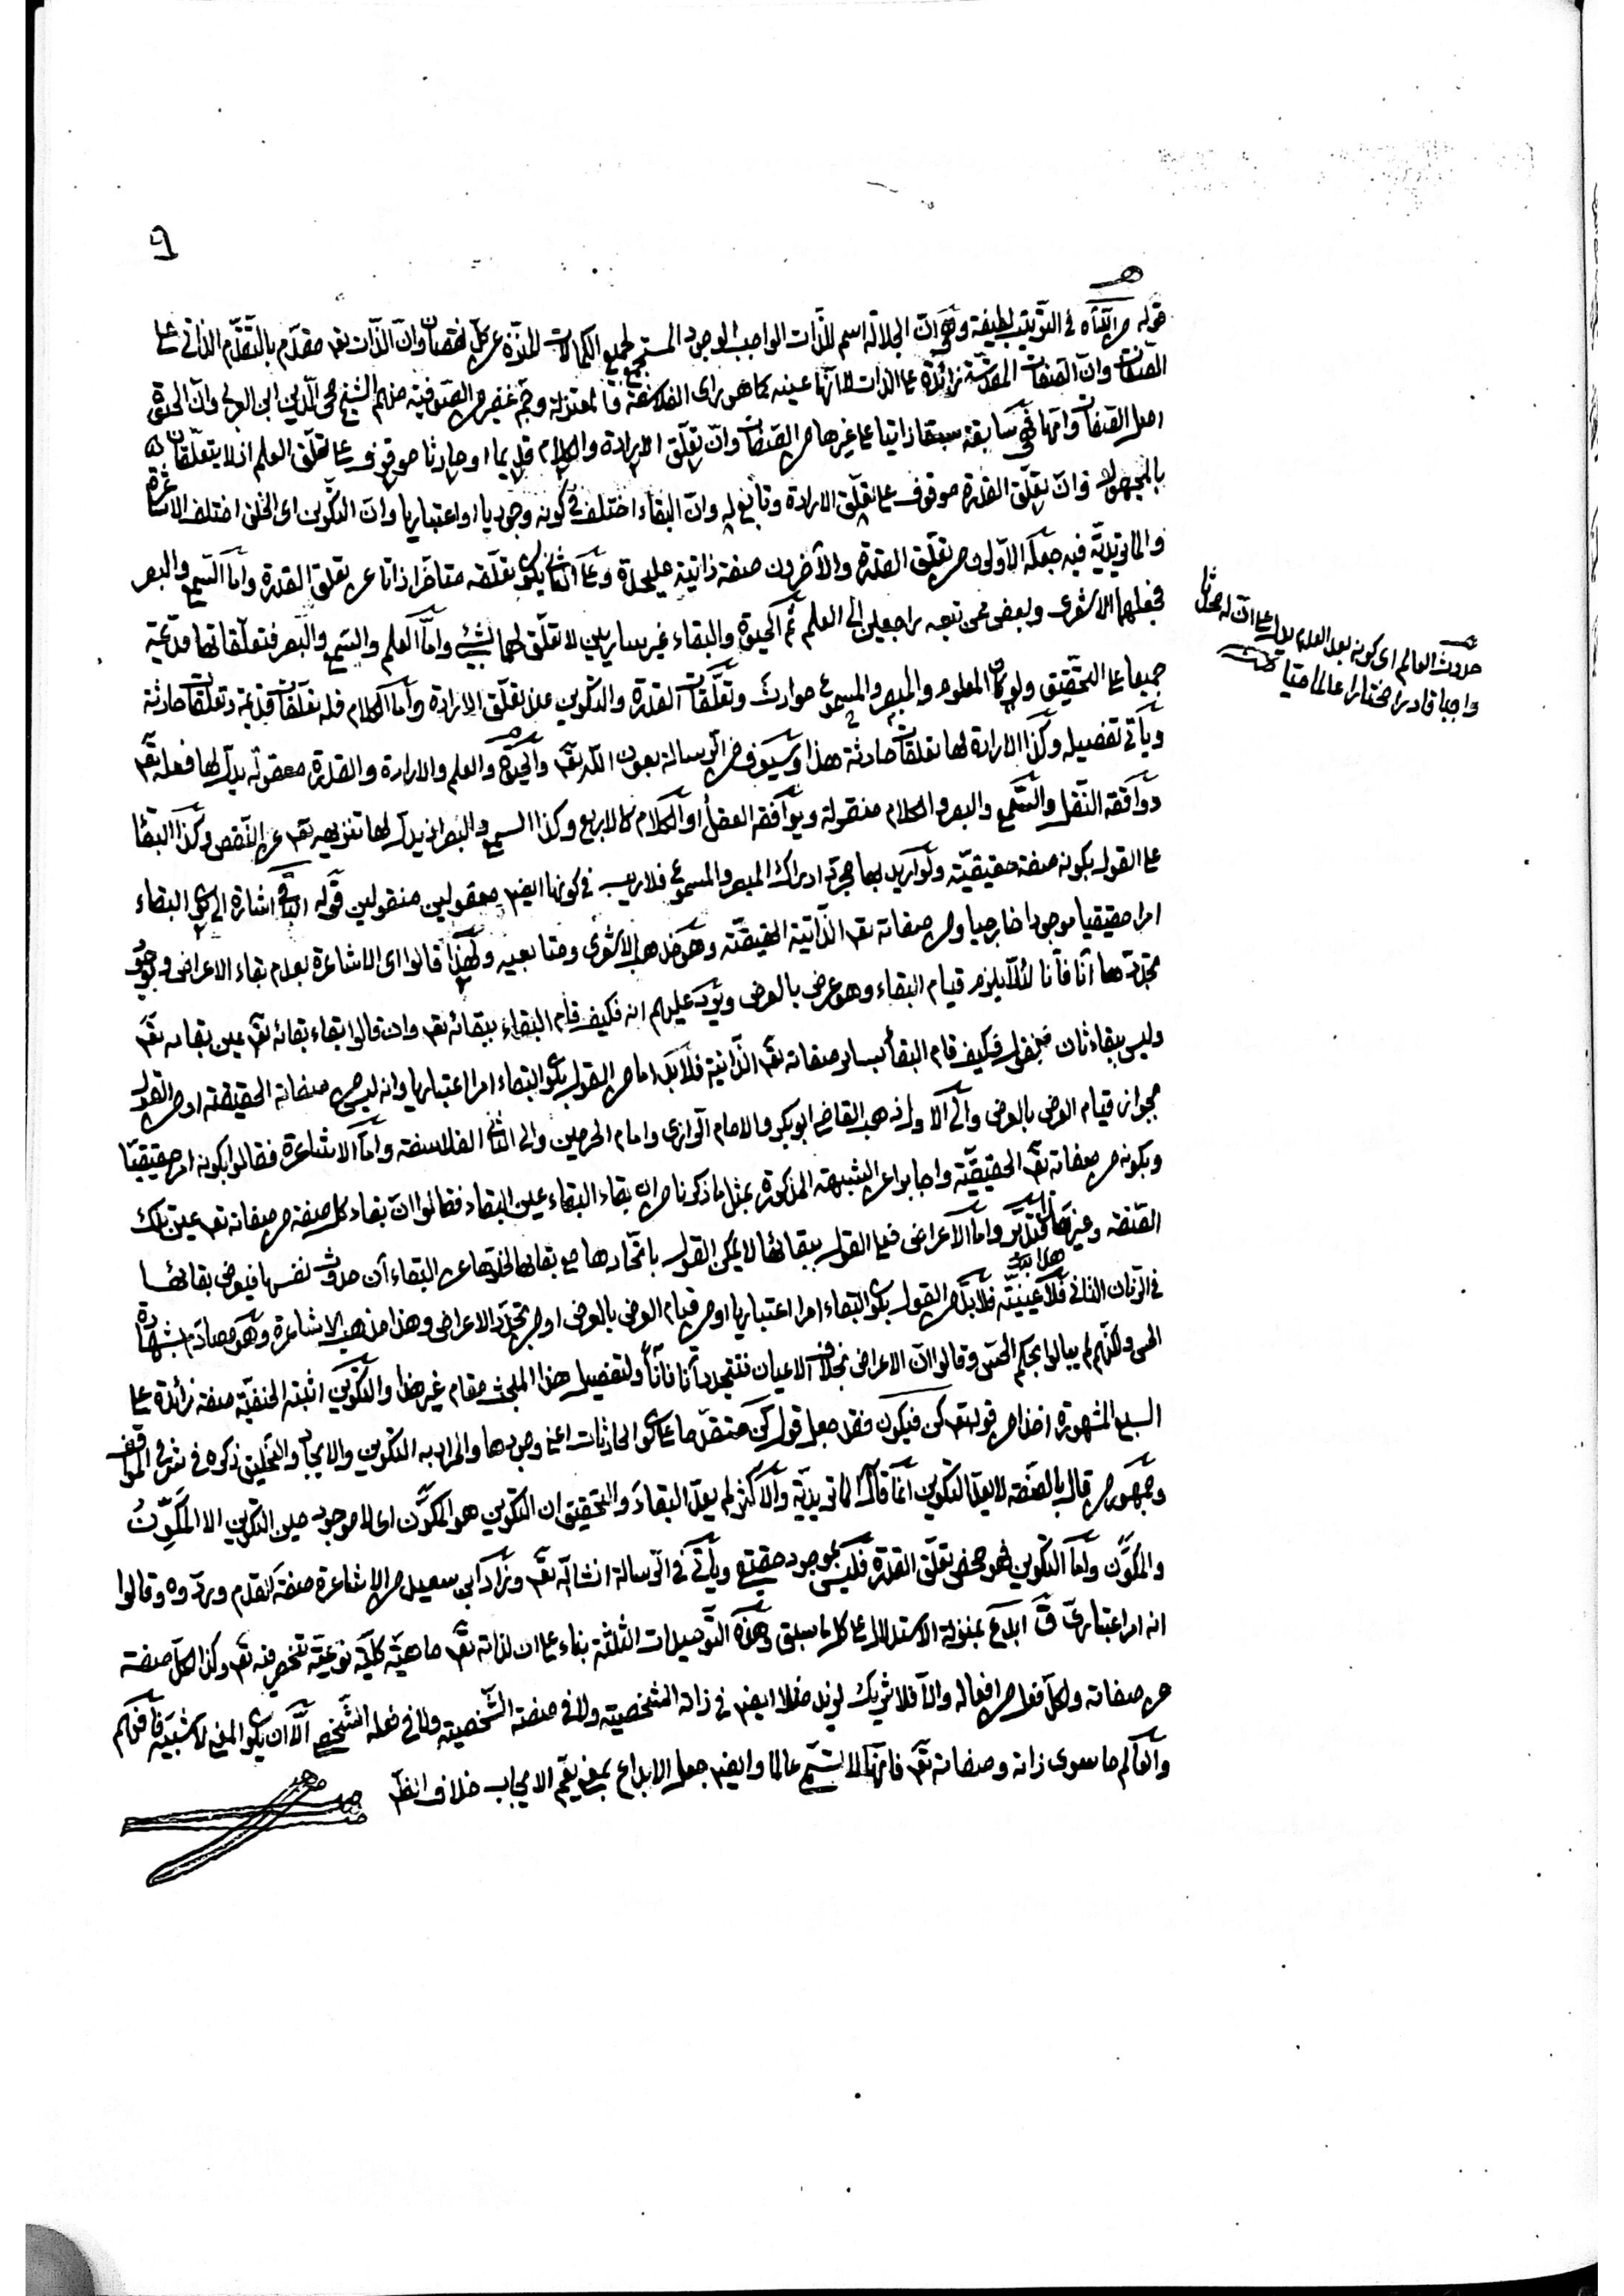 9
قوله من اتيناه في الترتيب لطيفة وهي ان الجلالة اسم للذات الواجب الوجود المستجمع لجميع الكمالات المنزه عن كل نقصان وان الذات تقم مقدم بالتقدم الذاتي على
الصفات وان الصفات المقدسة زائدة على الذات لا انها عينه كما هو رأى الفلاسفة فالمعتزلة وجم غفير من الصوفية منهم الشيخ محى الدين ابن العربي وان الحيوة
اصل الصفات وانها سابقة سبقا ذاتيا على غيرها من الصفات وان تعلق الارادة والكلام قديما او حادثا موقوف على تعلق العلم اذ لا يتعلقان
بالمجهول وان تعلق القدرة موقوف على تعلق الارادة وتابع له وان البقاء اختلف في كونه وجوديا او اعتباريا وان التكوين اى الخلق اختلف الاشاعرة
والماتريدية فيه جعله الاولون من تعلق القدرة والآخرون صفة ذاتية عليحدة وعلى الثاني يكون تعلقه متأخرا ذاتا عن تعلق القدرة واما السمع والبصر
فجعلهما الاشعرى وبعض ممن تبعه راجعين الى العلم ثم الحيوة والبقاء غير ساريين لا تعلق لهما بشيء واما العلم والسمع والبصر فتعلقاتها قديمة
جميعا على التحقيق ولو كان المعلوم والمبصر والمسموع حوادث وتعلقات القدرة والتكوين عند تعلق الارادة واما الكلام فله تعلقات قديمة وتعلقات حادثة
ويأتي تفصيله وكذا الارادة لها تعلقات حادثة هذا وسيوف في الرسالة بعون الله تقم والحيوة والعلم والارادة والقدرة معقولة يدل لها فعله تقم
ووافقه النقل والسمع والبصر والكلام منقولة ويوافقه العقل او الكلام كالاربع وكذا السمع والبصر اذ يدل لها تنزيهه تقم عن النقص وكذا البقاء
على القول بكونه صفة حقيقية ولو اريد بهما مجرد ادراك المبصر والمسموع فلا ريب في كونهما ايضا معقولين منقولين قوله اشارة الى كون البقاء
امرا حقيقيا موجودا خارجيا ومن صفاته تقم الذاتية الحقيقية وهو مذهب الاشعرى ومتابعيه ولهذا قالوا اى الاشاعرة بعدم بقاء الاعراض وبوجوب
تجددها آنا فآنا لئلا يلزم قيام البقاء وهو عرض بالعرض ويرد عليهم انه فكيف قام البقاء ببقائه تقم وان قالوا بقاء بقائه تقم عين بقائه تقم
وليس ببقاء ثان فنقول فكيف قام البقاء بسائر صفاته تقم الذاتية فلا بد اما من القول بكون البقاء امرا اعتباريا وانه ليس من صفاته الحقيقية او من القول
بجواز قيام العرض بالعرض والى الاول ذهب القاضي ابو بكر والامام الرازى وامام الحرمين والى الثاني الفلاسفة واما الاشاعرة فقالوا بكونه امرا حقيقيا
وبكونه من صفاته تقم الحقيقية واجابوا عن الشبهة المذكورة بمثل ما ذكرنا من ان بقاء البقاء عين البقاء فقالوا ان بقاء كل صفة من صفاته تقم عين تلك
الصفة واما الاعراض فعلى القول ببقائها لا يمكن القول باتحادها مع بقائها لخلوها عن البقاء آن حدوث نفسها فيعرض بقائها
في الزمان الثاني فلا عينية فلا بد من القول بكون البقاء امرا اعتباريا او من قيام العرض بالعرض او من تجدد الاعراض وهذا مذهب الاشاعرة وهو مصادم بشهادة
الحس ولكنهم لم يبالوا بحكم الحس وقالوا ان الاعراض بخلاف الاعيان فتتجدد آنا فآنا ولتفصيل هذا المبحث مقام غير هذا والتكوين اثبته الحنفية صفة زائدة على
السبع المشهورة اخذا من قوله تقم كن فيكون فقد جعل قول كن متقدما على كون الحادثات اعنى وجودها والمراد به التكوين والايجاد والتخليق ذكره في شرح المواقف
وجمهور من قال بالصفة لا يعد التكوين انما قال الماتريدية والاكثر لم يعد البقاء والتحقيق ان التكوين هو المكون اى لا موجود حين التكوين الا المكوِّن
والمكوَّن واما التكوين فهو محض تعلق القدرة فليس بموجود حقيقي ويأتي في الرسالة انشاالله تقم وزاد ابن سعيد من الاشاعرة صفة القدم وردوه وقالوا
انه امر اعتبارى ق ابدع بمنزلة الاستدلال على كل ما سبق وهذه التوصيلات الثلثة بناء على ان لذاته تقم ماهية كلية نوعية تنحصر فيه تقم وكذا لكل صفة
من صفاته ولكل فعل من افعاله والا فلا شريك لزيد مثلا ايضا في ذاته الشخصية ولا في صفته الشخصية ولا في فعله الشخصي الا ان يكون المنفى لا شبيه فافهم
والعالم ما سوى ذاته وصفاته تقم فانها لا تسمى عالما وايضا جعل الابداع بمعنى يعم الايجاب خلاف الظ
حدوث العالم اى كونه بعد العدم يدل على ان له محدثا
واجبا قادرا مختارا عالما حيا